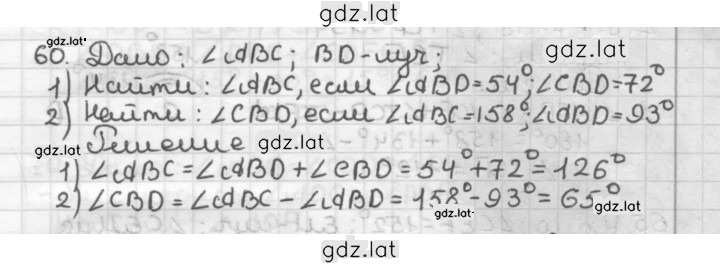 gdz.lat
gdz.lat
60. Дано: ∠ABC; BD-луч; gdz.lat
1) Найти: ∠ABC, если ∠ABD=54°; ∠CBD=72°
2) Найти: ∠CBD, если ∠ABC=158°; ∠ABD=93°
gdz.lat Решение gdz.lat
1) ∠ABC = ∠ABD + ∠CBD = 54° + 72° = 126°
2) ∠CBD = ∠ABC - ∠ABD = 158° - 93° = 65°
gdz.lat gdz.lat
gdz.lat